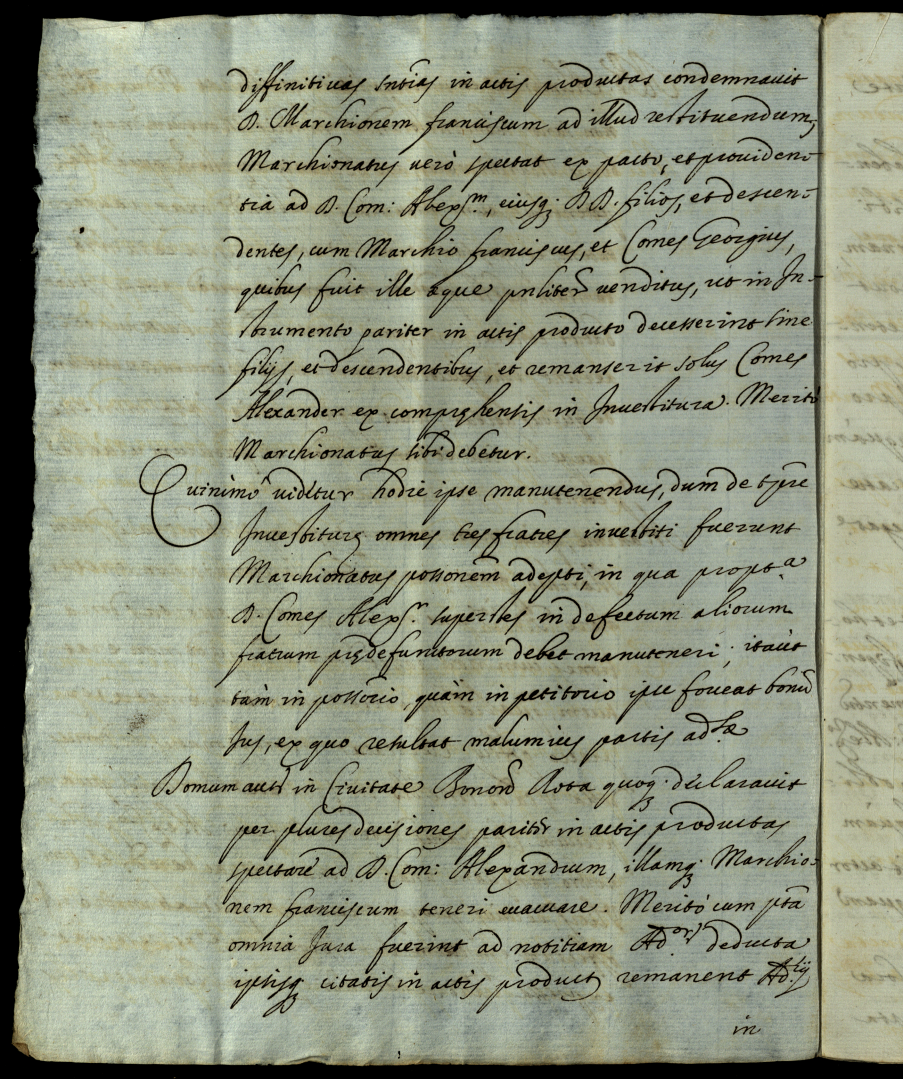 diffinitiuas sntias in actis productas condemnauit
D. Marchionem franciscum ad illud restituendum;
Marchionatus uerò spectat ex pacto, et prouiden-
tia ad D. Com: Alexm., eiusq; DD. filios, et descen-
dentes, cum Marchio franciscus, et Comes Georgius,
quibus fuit ille aque pnliter uenditus, ut in In-
strumento pariter in actis producto decesserint sine
filijs, et descendentibus, et remanserit solus Comes
Alexander ex compręhensis in Inuestitura. Meritò
Marchionatus sibi debetur.
Quinimò uidetur hodie ipse manutenendus, dum de tpre
Inuestiturę omnes tres fratres inuestiti fuerunt
Marchionatus possonem adepti, in qua propta
D. Comes Alexr. superstes in defectum aliorum
fratrum prędefunctorum debet manuteneri; itaùt
tàm in possorio, quàm in petitorio ipse foueat bonū
Jus, ex quo resultat malum ius partis adsæ
Domum autē in Ciuitate Bonon Rota quoq; declarauit
per plures decisiones paritēr in actis productas
spectare ad D. Com: Alexandrum, illamq; Marchio-
nem franciscum teneri euacuare. Meritò cum pta
omnia Jura fuerint ad notitiam Adorų deducta
ipsisq; citatis in actis product remanent Ad.ij
in